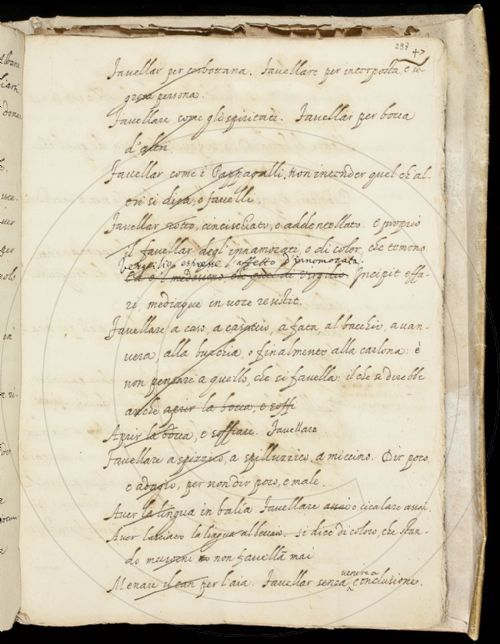 293 47
Favellar per cerbottana. Favellare per interposta, e se-
greta persona.
Favellare come gli spiritati. Favellar per bocca
d'altri.
Favellar come i Pappagalli, non intender quel ch'al-
tri si dica, o favelli.
Favellar rotto, cincischiato, o addentellato. è proprio
il favellar degl'innamorati, o di color, che temono.
Vergilio espresse l'affetto d'innamorata
Ed è il medesimo, che quel di Virgilio Incipit effa-
ri, mediaque in voce resistit.
Favellare a caso, a casaccio, a fata, al bacchio, a van-
vera, alla burchia, o finalmente alla carlona: è
non pensare a quello, che si favella: il che si direbbe
anche aprir la bocca, e soffi
Aprir la bocca, e soffiare. Favellare
Favellare a spizzico, a spilluzzico, a miccino. Dir poco,
e adagio, per non dir poco, e male.
Aver la lingua in balía Favellare assai o cicalare assai.
Aver lasciato la lingua al beccaio. si dice di coloro, che stan-
do non favellã mai
Menare il can per l'aia. Favellar senza venire a conclusione.